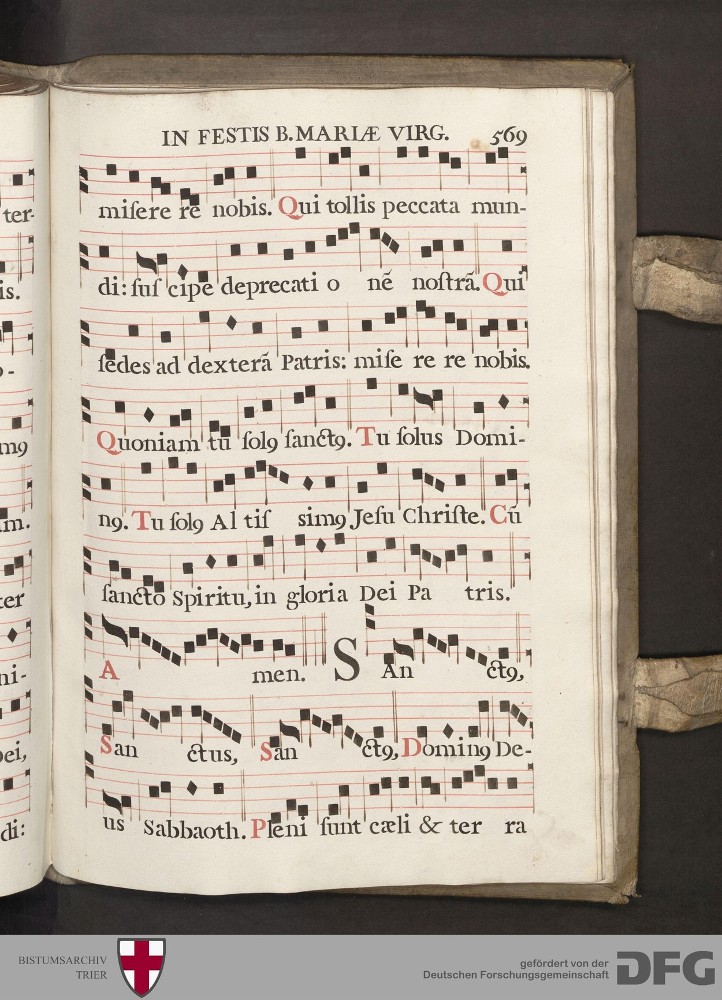 IN FESTIS B. MARIÆ VIRG. 569
ter-
miſere re nobis. Qui tollis peccata mun-
is.
di: ſuſ cipe deprecati o nẽ noſtrã. Qui
ſedes ad dexterã Patris: miſe re re nobis.
Quoniam tu ſolꝰ ſanctꝰ. Tu ſolus Domi-
mꝰ
nꝰ. Tu ſolꝰ Al tiſ simꝰ Jeſu Chriſte. Cũ
m.
ſancto Spiritu, in gloria Dei Pa tris.
ter
A men. S An ctꝰ,
ni-
San ctus, San ctꝰ, Dominꝰ De-
ei,
us Sabbaoth. Pleni ſunt cæli & ter ra
di:
BISTUMSARCHIV
TRIER
gefördert von der
Deutschen Forschungsgemeinschaft
DFG